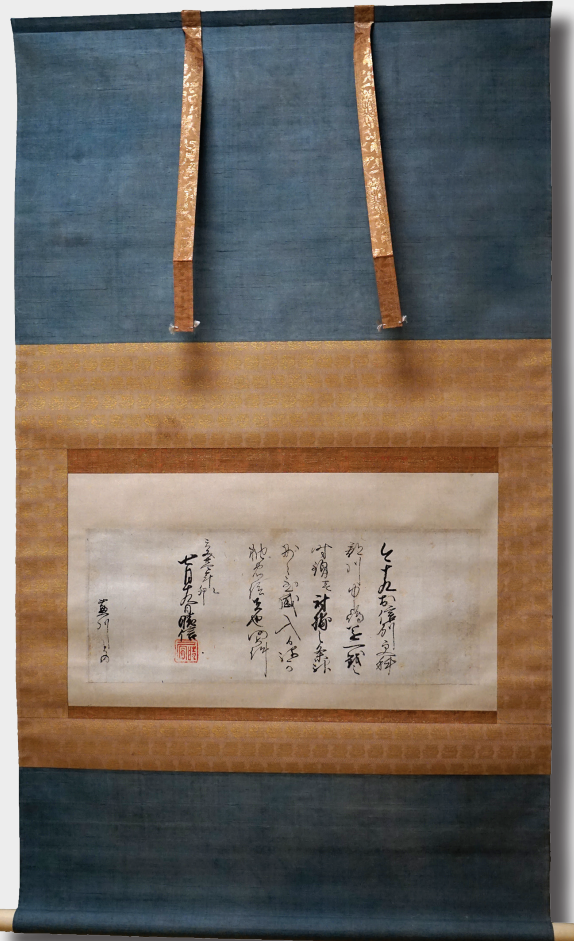 今十九於信州更科
郡川中嶋遂一戦之
時頸壱討捕之条神
妙之至感入候弥可
抽忠信者也仍如件
天文廿四年乙卯
七月十九日晴信
蘆川との